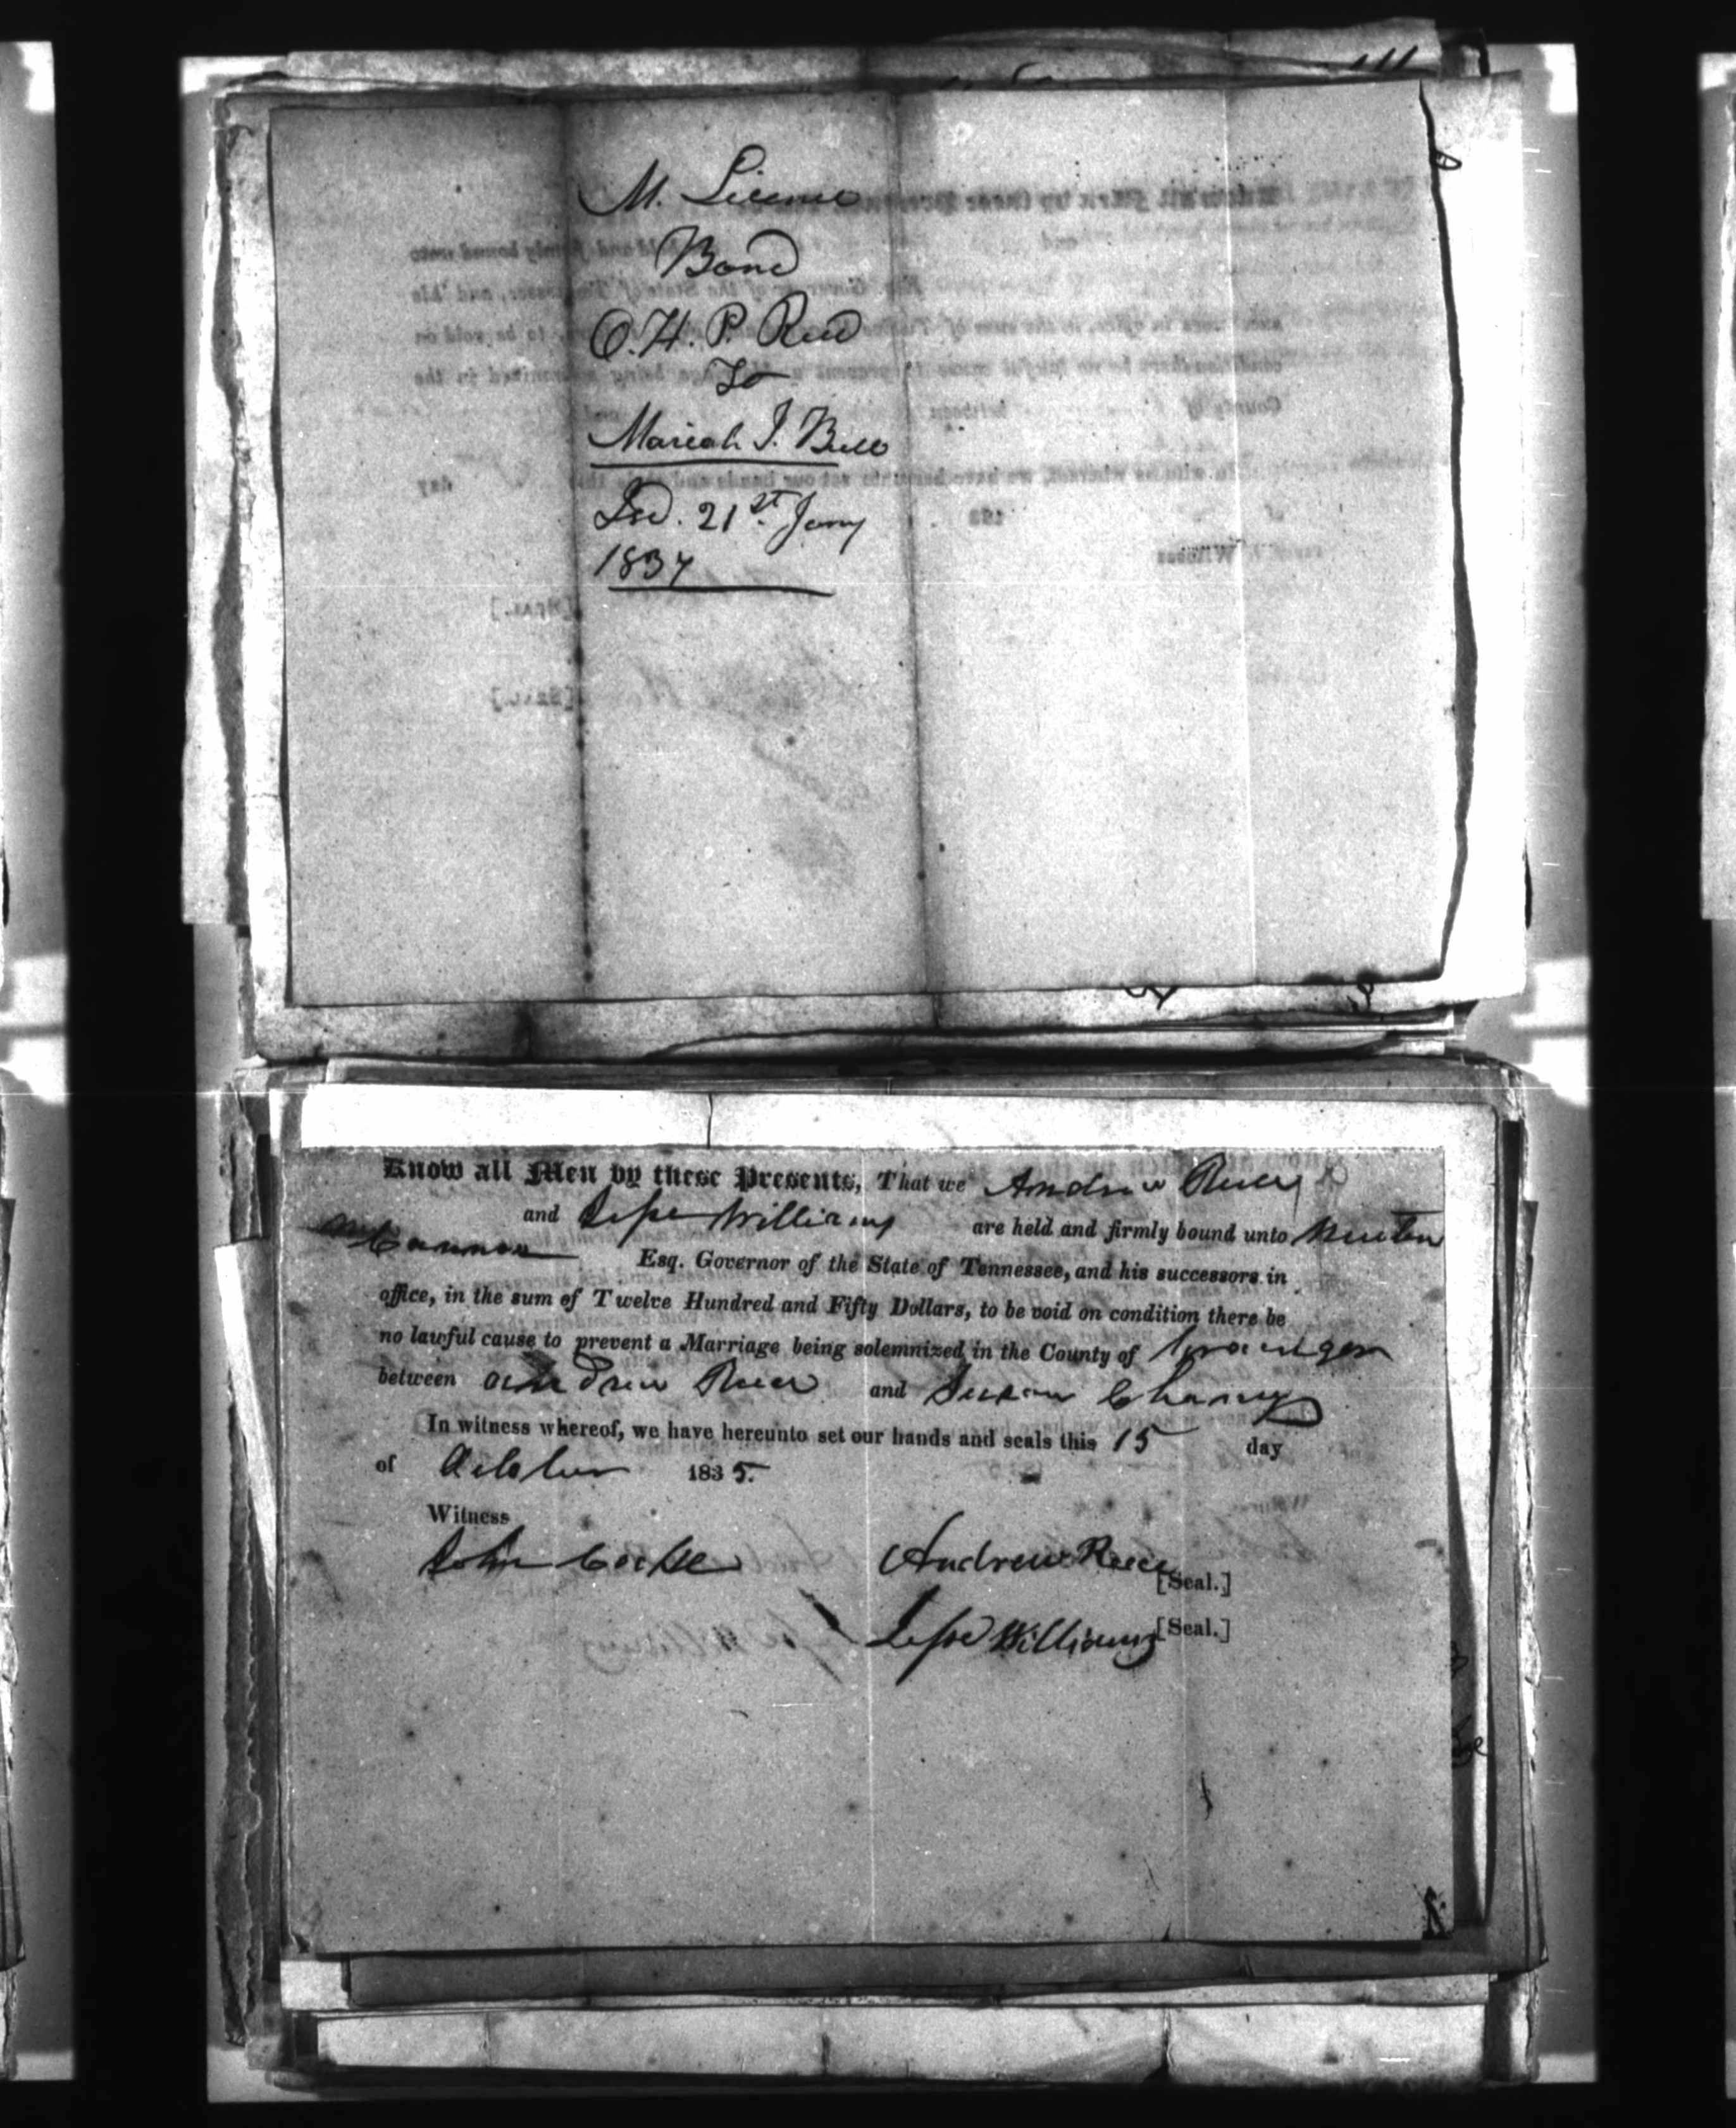 M. License
Bond
O. H. P. Reed
To
Mariah J. Bull
Isd. 21st Jany
1834
Know all Men by these Presents, That we Andrew Reece
and Jesse Williams are held and firmly bound unto Newton
Cannon Esq. Governor of the State of Tennessee, and his successors in
office, in the sum of Twelve Hundred and Fifty Dollars, to be void on condition there be
no lawful cause to prevent a Marriage being solemnized in the County of Grainger
between Andrew Reece and Susan Chaney
In witness whereof, we have hereunto set our hands and seals this 15 day
of October 1835.
Witness
John Cocke Andrew Reece [Seal.]
Jesse Williams [Seal.]